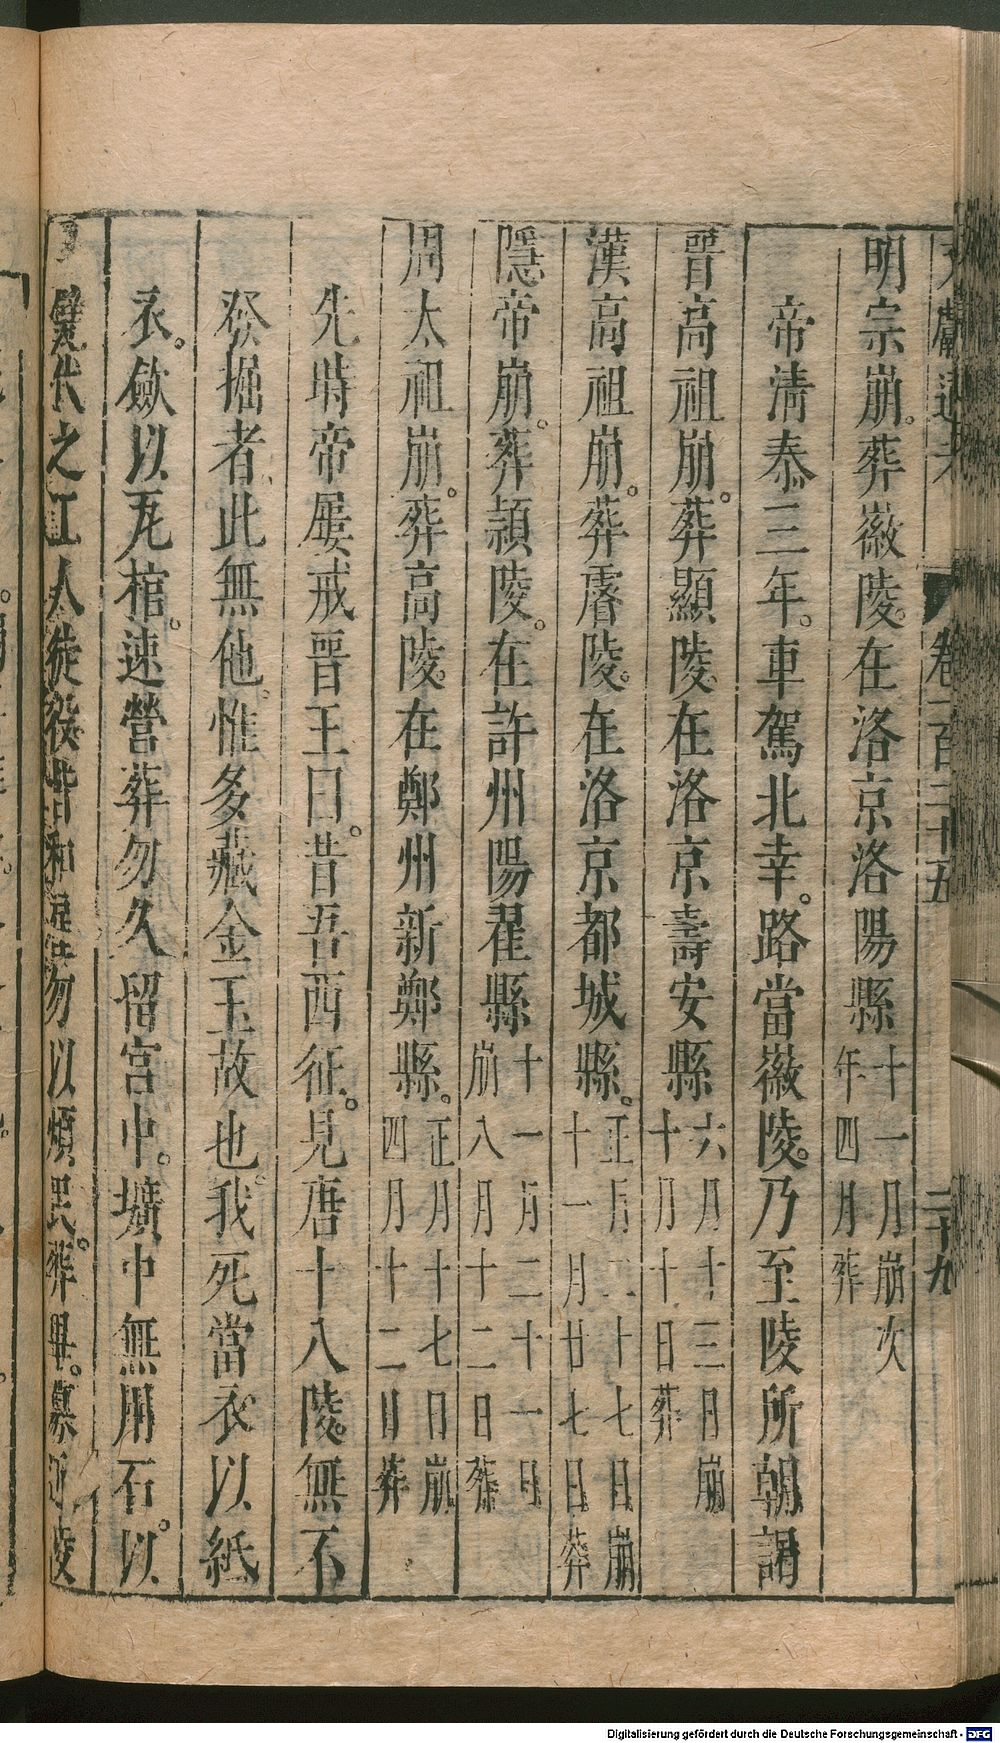 卷一百二十五 二十九
明宗崩。葬徽陵。在洛京洛陽縣十一月崩次年四月葬
帝淸泰三年。車駕北幸。路當徽陵。乃至陵所朝謁
晉高祖崩。葬顯陵在洛京壽安縣六月十三日崩十月十日葬
漢高祖崩。葬睿陵。在洛京都城縣。正月二十七日崩十一月廿七日葬
隱帝崩。葬潁陵。在許州陽翟縣十一月二十一日崩八月十二日葬
周太祖崩。葬高陵。在鄭州新鄭縣。正月十七日崩四月十二日葬
先時帝屢戒晉王曰。昔吾西征。見唐十八陵。無不
發掘者此無他。惟多藏金玉故也。我死當衣以紙
衣。斂以瓦棺。速營葬勿久留宮中。壙中無用石。以
甓代之工人徒役皆和雇勿以煩民。葬畢。募近陵
Digitalisierung gefördert durch die Deutsche Forschungsgemeinschaft - DFG